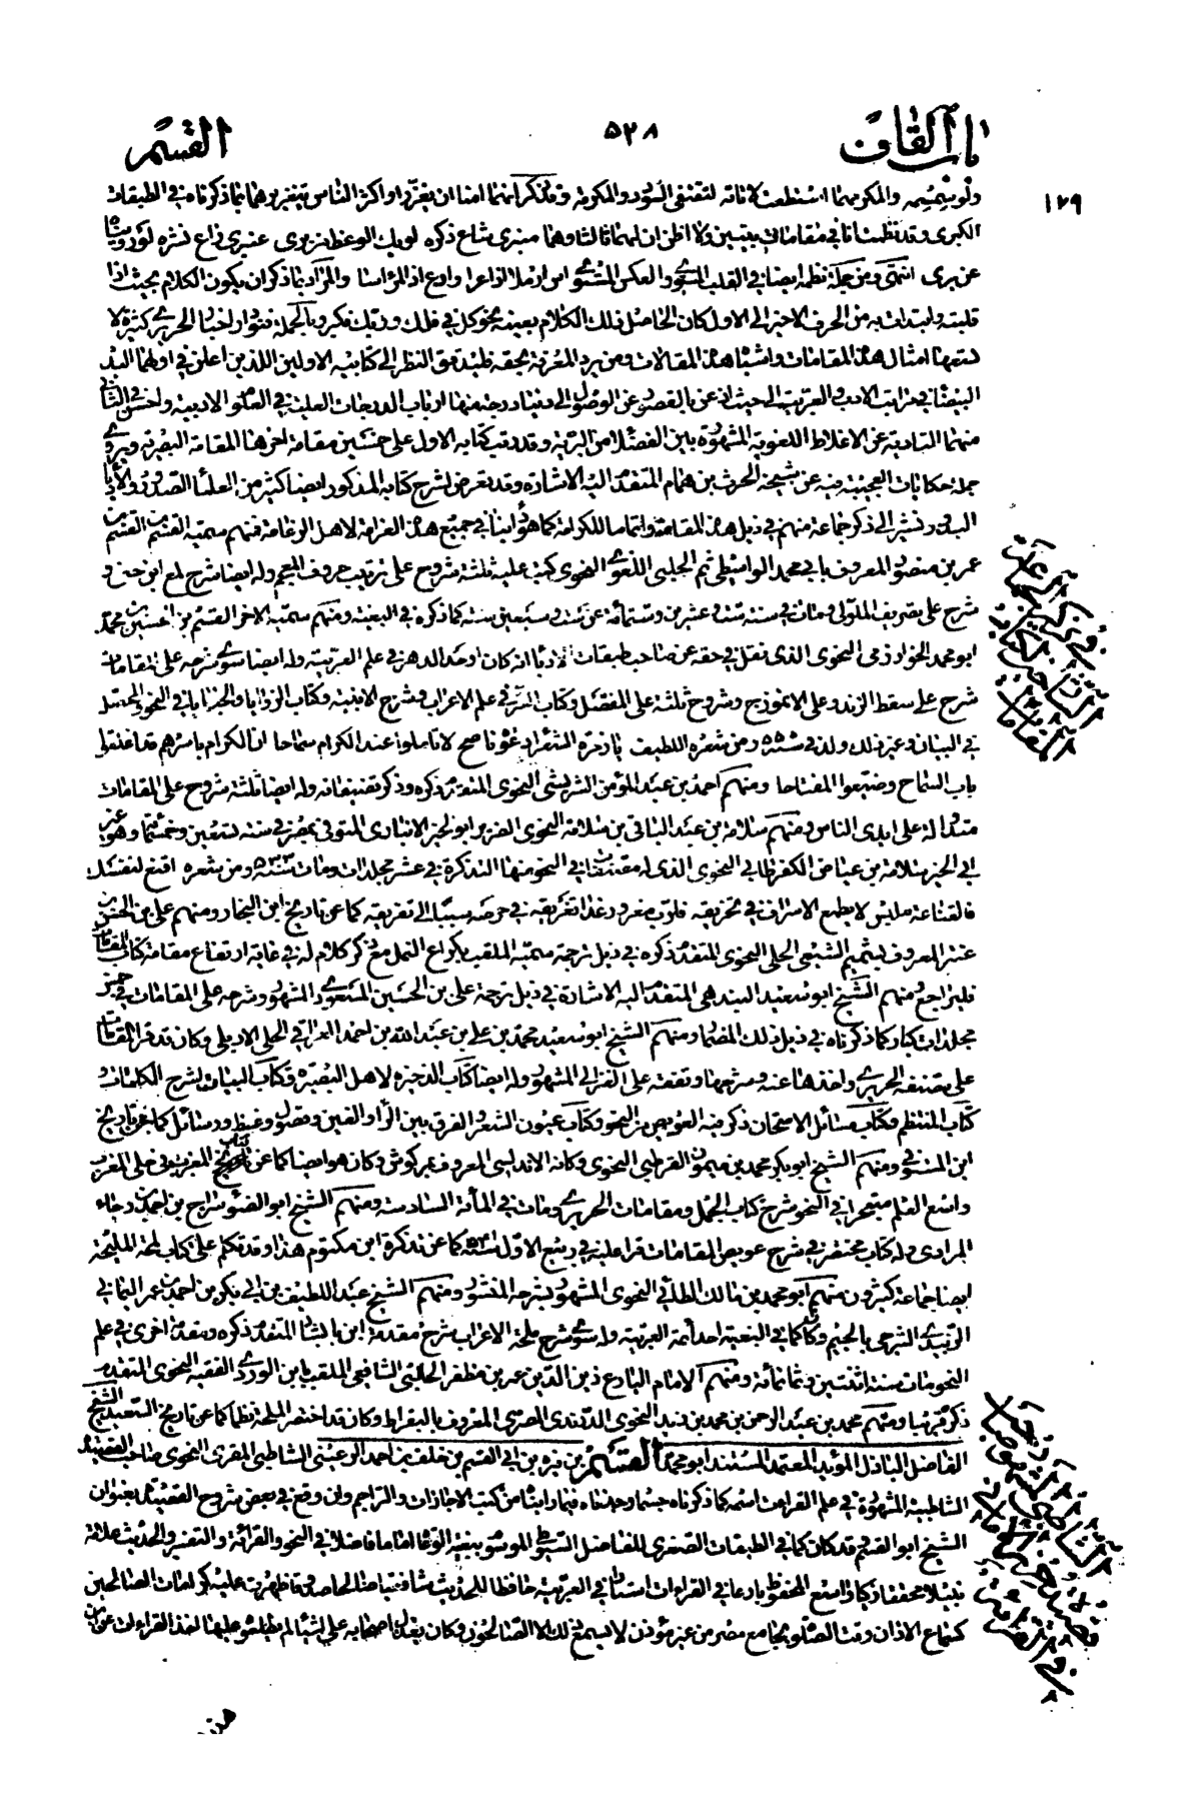 باب القاف
٥٢٨
القسم
١٢٩
ولو بسمسمه والمكر مهما اسطعت لا تاته لتقتنى السودد والمكرمة وقد ذكر انهما امنا ان يعززا واكثر الناس بتغييرهما بما ذكرناه في الطبقات
الكبرى وقد نظمت انا في مقاماتي بيتين ولا اظن ان لهما ثالثا وهما
عن برى انتهى ومن جملة نظمه ايضا في القلب والعكس المستوى اس ارملا اذا عرا وارع اذا المرء اسا والمراد بما ذكر ان يكون الكلام بحيث اذا
قلبته وابتدات به من الحرف الاخير الى الاول كان الحاصل ذلك الكلام بعينه نحو كل في فلك وربك فكبر وبالجملة فنوادر اخبار الحريرى كثيرة لا
تسعها امثال هذه المقامات واشباه هذه المقالات ومن يرد المعرفة بحقه فليدقق النظر الى كتابيه الاولين اللذين اعلن في اولهما اليد
البيضاء في مراتب الادب والعربية الى حيث
منهما التادية عن الاغلاط اللغوية المشهورة بين الفضلاء من البرية وقد رتب كتابه الاول على خمسين مقامة اخرها المقامة البصرية ويروى
جملة حكايات العجيبة فيه عن شيخه الحرث بن همام المتقدم اليه الاشارة وقد تعرض لشرح كتابه المذكور ايضا كثير من العلماء الصدور والادباء
البدور ونشير الى ذكر جماعة منهم في ذيل هذه المقامة واتماما للكرامة كما هو دابنا في جميع هذه الغرامة لاهل الزعامة فمنهم سميه القسم بن القسم
عمر بن منصور المعروف بابي محمد الواسطي ثم الحلبي اللغوى النحوى كتب عليه ثلثة شروح على ترتيب حروف المعجم وله ايضا شرح لمع ابن جنى و
شرح على تصريف الملوكي ومات في سنة ست وعشرين وستمائة عن ست وسبعين سنة كما ذكره في البغية ومنهم سميه الاخر القسم بن الحسين بن محمد
ابو محمد الخوارزمى النحوى الذى نقل في حقه عن صاحب طبقات الادباء انه كان اوحد الدهر في علم العربية وله ايضا سوى شرحه على المقامات
شرح على سقط الزند وعلى الانموذج وشروح ثلثة على المفصل وكتاب السر في علم الاعراب وشرح الابنية وكتاب الزوايا والخبايا في النحو والمحصل
في البيان وغير ذلك ولد في سنة ٥٥٥ ومن شعره اللطيف يا زمرة الشعراء دعوة ناصح لا تاملوا عند الكرام سماحا ان الكرام باسرهم قد اغلقوا
باب السماح وضيعوا المفتاحا ومنهم احمد بن عبد المؤمن الشريشى النحوى المتقدم ذكره وذكر تصنيفاته وله ايضا ثلثة شروح على المقامات
متداولة على ايدى الناس ومنهم سلامة بن عبد الباقي بن سلامة النحوى الضرير ابو الخير الانبارى المتوفى بمصر في سنة تسعين وخمسمائة وهو غير
ابي الخير سلامة بن عياض الكفرطابي النحوى الذى له مصنفات في النحو منها التذكرة في عشر مجلدات ومات سنة ٥٣٣ ومن شعره اقنع لنفسك
فالقناعة ملبس لا يطمع الاسراف في تخريقه فلرب مغرور غدا تغريقه في حرصه سببا الى تفريقه كما عن تاريخ ابن النجار ومنهم على بن الحسن بن
عنتر المعروف بشميم الشيعى الحلي النحوى المتقدم ذكره في ذيل ترجمة سميه الملقب بكراع النمل مع ذكر كلام له في غاية ارتفاع مقامة كتاب المقامات
فليراجع ومنهم الشيخ ابو سعيد البندهى المتقدم اليه الاشارة في ذيل ترجمة على بن الحسين المسعودى المشهور وشرحه على المقامات في خمس
مجلدات كبار كما ذكرناه في ذيل ذلك المضمار ومنهم الشيخ ابو سعيد محمد بن على بن عبد الله بن احمد العراقي الحلي الاربلي وكان قد قرا المقامات
على مصنفه الحريرى واخذها عنه وشرحها وتفقه على الغزالي المشهور وله ايضا كتاب الذخيرة لاهل البصيرة وكتاب البيان لشرح الكلمات و
كتاب المنتظم وكتاب مسائل الامتحان ذكر فيه العويص من النحو وكتاب عيون الشعر والفرق بين الراء والغين وفصول وعظ ورسائل كما عن تاريخ
ابن المستوفي ومنهم الشيخ ابو بكر محمد بن ميمون القرطبي النحوى وكانه الاندلسى المعروف بمركوش وكان هو ايضا كما عن كتاب المغرب في حلى المغرب
واسع العلم متبحرا في النحو شرح كتاب الجمل ومقامات الحريرى ومات في المائة السادسة ومنهم الشيخ ابو الضوء سراج بن احمد بن رجاء
المرادى وله كتاب مختصر في شرح عويص المقامات قرا عليه في ربيع الاول سنة كما عن تذكرة ابن مكتوم هذا وقد تكلم على كتاب لمحة الملحة
ايضا جماعة كثيرون منهم ابو محمد بن مالك الطائي النحوى المشهور بشرحه المنثور ومنهم الشيخ عبد اللطيف بن ابي بكر بن احمد بن عمر اليماني
الزبيدى الشرجى بالجيم وكان كما في البغية احد ائمة العربية وله سوى شرح ملحة الاعراب شرح مقدمة ابن بابشاذ المتقدم ذكره ومقدمة اخرى في علم
النحو مات سنة اثنتين وثمانمائة ومنهم الامام البارع زين الدين عمر بن مظفر الحلبي الشافعي الملقب بابن الوردى الفقيه النحوى المتقدم
ذكره قريبا ومنهم محمد بن عبد الرحمن بن محمد بن زيد النحوى السندى المصرى المعروف بالبقراط وكان قد اختصر الملحة نظما كما عن تاريخ السعيد الشيخ
الفاضل الباذل المؤيد المعتمد المستند ابو محمد القسم بن فيره بن ابي القسم بن خلف بن احمد الرعيني الشاطبي المقرى النحوى صاحب القصيدة
الشاطبية المشهورة في علم القراءات اسمه كما ذكرناه حسبما وجدناه فيما راينا من كتب الاجازات والتراجم وان وقع في بعض شروح القصيدة بعنوان
الشيخ ابو القسم وقد كان كما في الطبقات الصغرى للفاضل السيوطى الموسوم ببغية الوعاة اماما فاضلا في النحو والقراءة والتفسير والحديث علامة
نبيلا محققا ذكيا واسع المحفوظ بارعا في القراءات استاذا في العربية حافظا للحديث شافعيا صالحا صدوقا ظهرت عليه كرامات الصالحين
كسماع الاذان وقت الصلوة بجامع مصر من غير مؤذن لا يسمع ذلك الا الصالحون وكان يعذل اصحابه على اشياء لم يطلعوه عليها اخذ القراءات عن ابن
هذيل